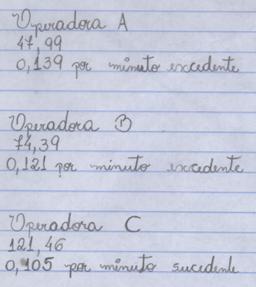 Operadora A
47,99
0,139 por minuto excedente
Operadora B
74,39
0,121 por minuto excedente
Operadora C
121,46
0,105 por minuto sucedente